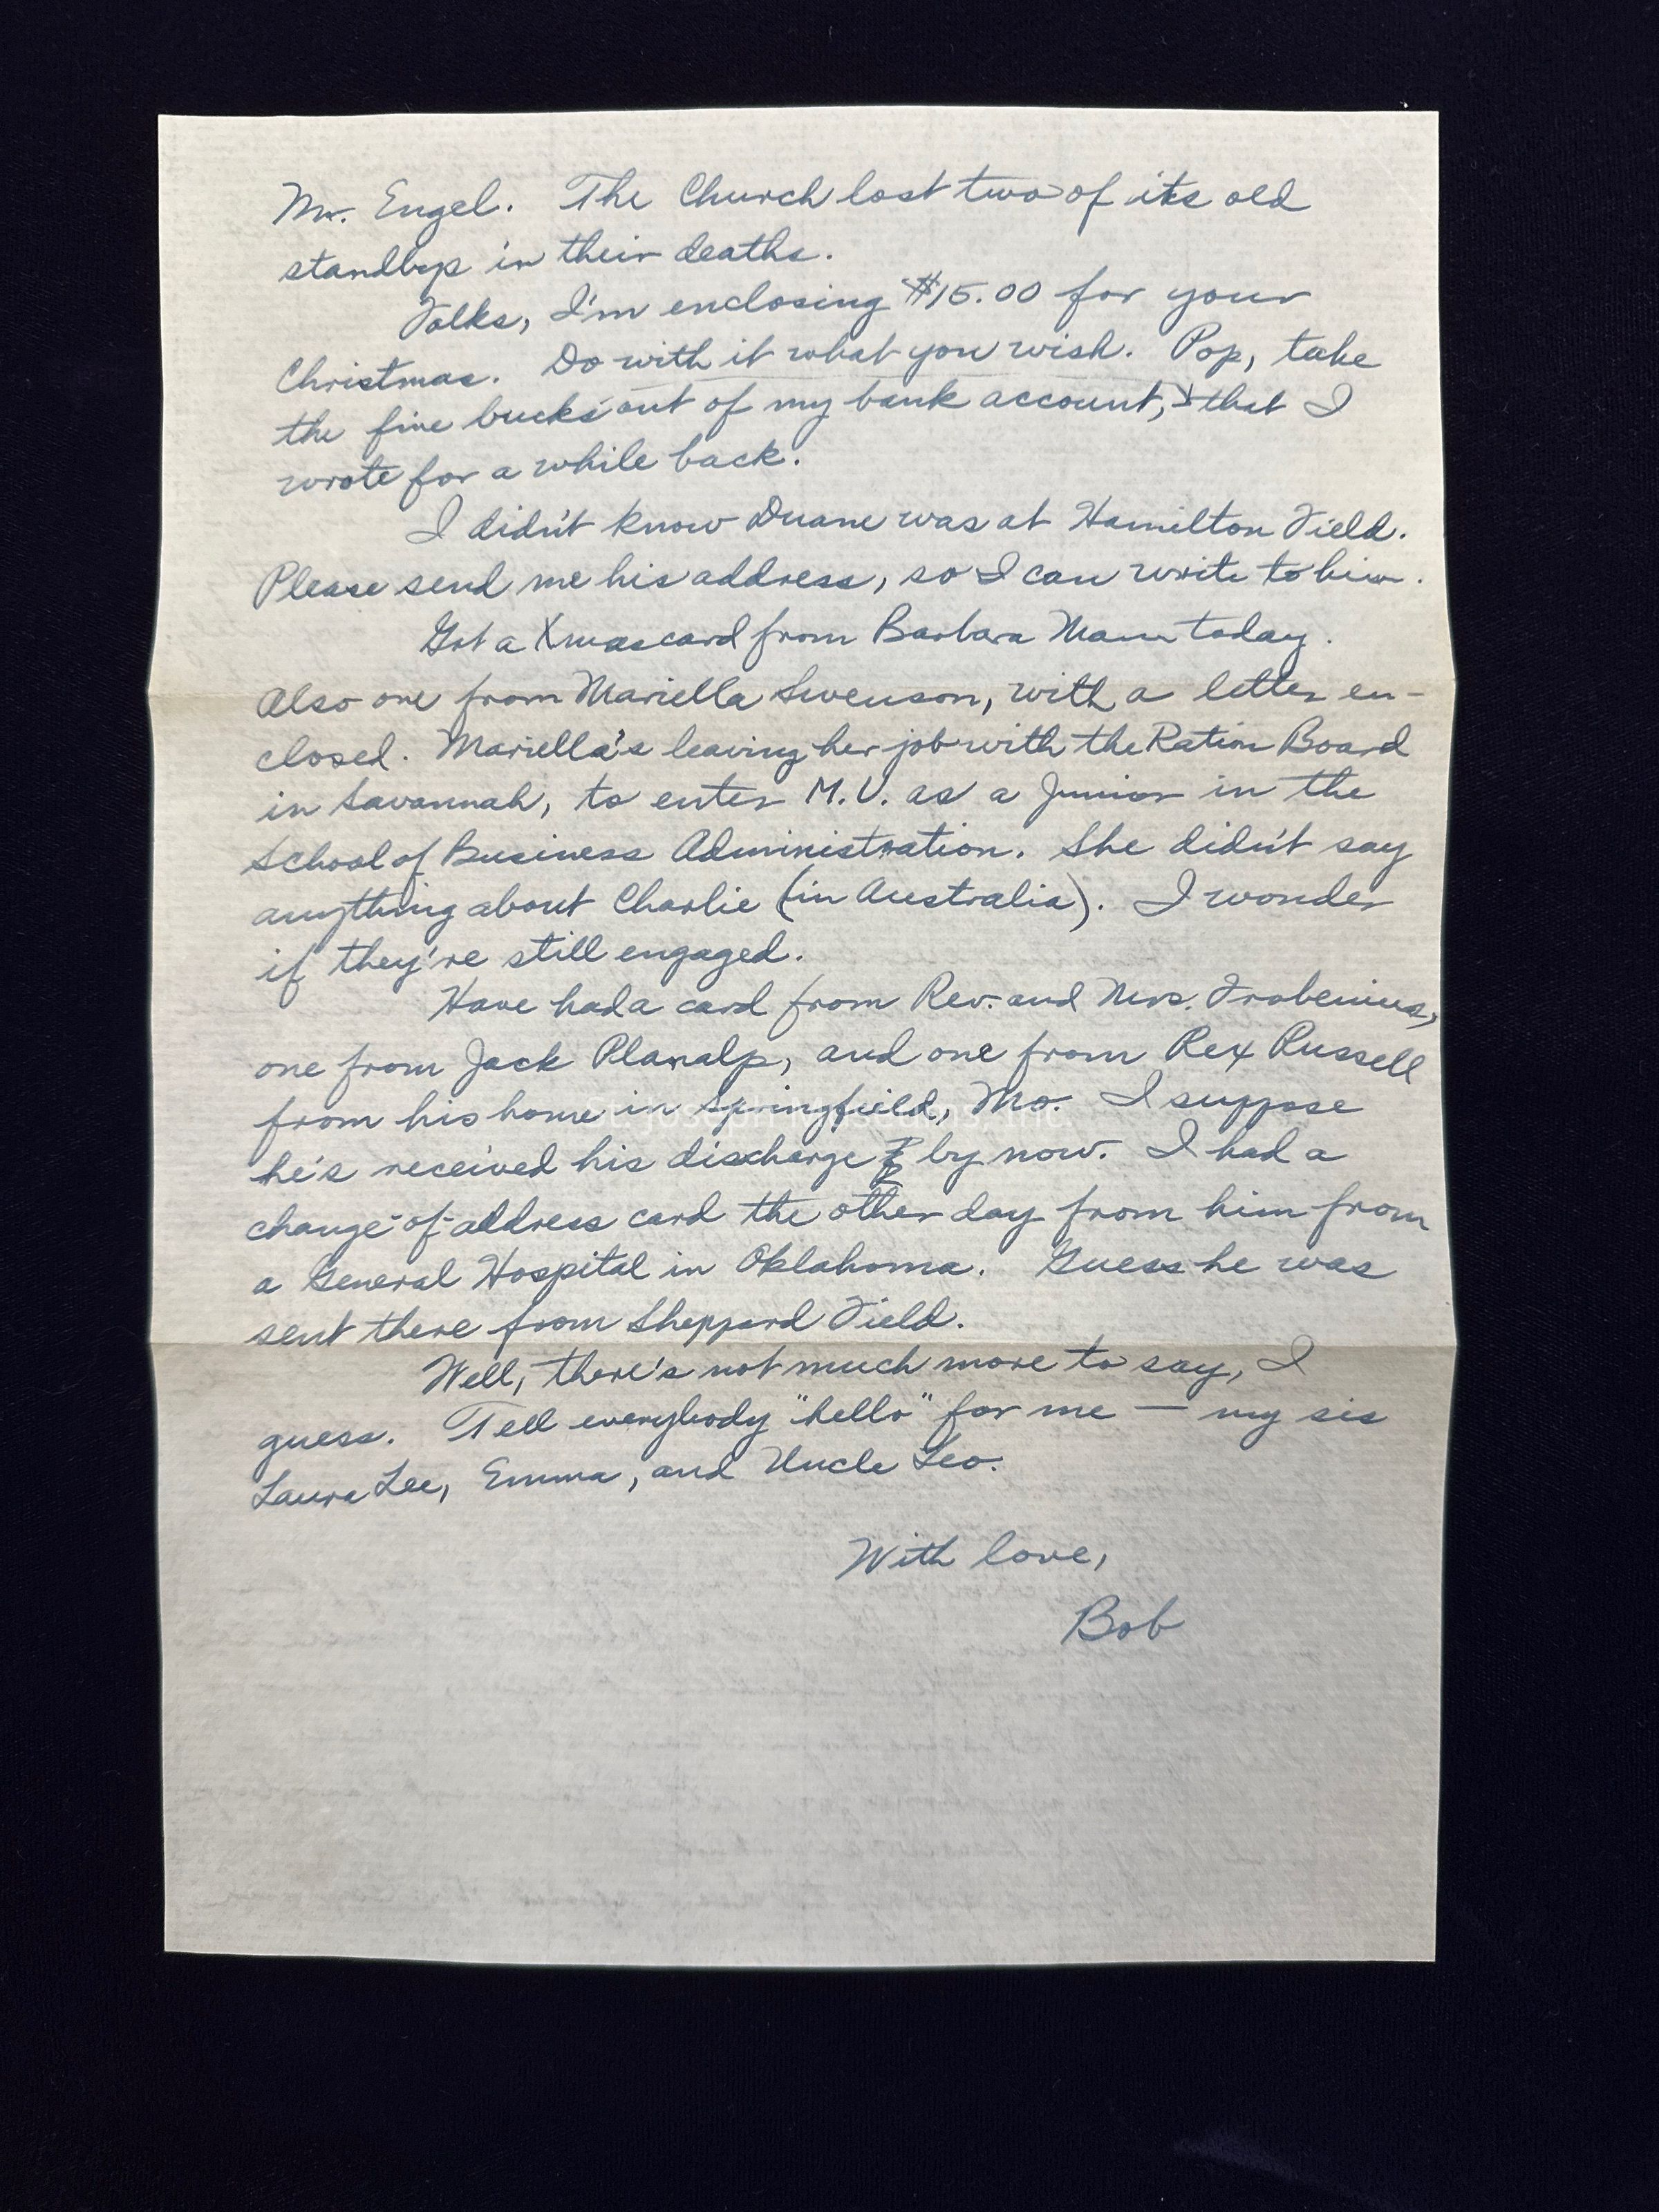 Mr. Engel. The Church lost two of its old
standbys in their deaths.
Folks, I'm enclosing $15.00 for your
Christmas. Do with it what you wish. Pop, take
the five bucks out of my bank account, that I
wrote for a while back.
I didn't know Duane was at Hamilton Field.
Please send me his address, so I can write to him.
Got a Xmas card from Barbara Mann today.
Also one from Mariella Swenson, with a letter en-
closed. Mariella's leaving her job with the Ration Board
in Savannah, to enter M.U. as a Junior in the
School of Business Administration. She didn't say
anything about Charlie (in Australia). I wonder
if they're still engaged.
Have had a card from Rev. and Mrs. Frobenius,
one from Jack Planalp, and one from Rex Russell
from his home in Springfield, Mo. I suppose
he's received his discharge by now. I had a
change-of-address card the other day from him from
a General Hospital in Oklahoma. Guess he was
sent there from Sheppard Field.
Well, there's not much more to say, I
guess. Tell everybody "hello" for me — my sis
Laura Lee, Emma, and Uncle Leo.
With love,
Bob